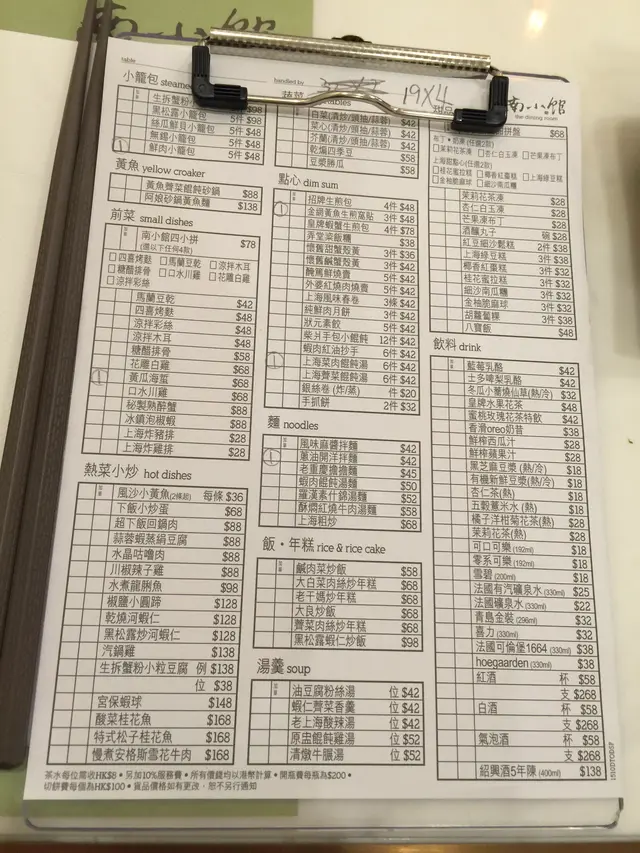 南小館
table
handled by
19X4
南小館
the dining room
小籠包 steame
生拆蟹粉
$98
黑松露小籠包 5件 $98
絲瓜鮮貝小籠包 5件 $48
無錫小籠包 5件 $48
鮮肉小籠包 5件 $48
黃魚 yellow croaker
黃魚薺菜餛飩砂鍋 $88
阿娘砂鍋黃魚麵 $138
前菜 small dishes
南小館四小拼 $78
(選以下任何4款)
四喜烤麩 馬蘭豆乾 涼拌木耳
糖醋排骨 口水川雞 花雕白雞
涼拌彩絲
馬蘭豆乾 $42
四喜烤麩 $48
涼拌彩絲 $48
涼拌木耳 $48
糖醋排骨 $58
花雕白雞 $68
黃瓜海蜇 $68
口水川雞 $68
秘製熟醉蟹 $88
冰鎮泡椒蝦 $88
上海炸豬排 $28
上海炸雞排 $28
熱菜小炒 hot dishes
風沙小黃魚(2條起) 每條 $36
下飯小炒蛋 $68
超下飯回鍋肉 $88
蒜蓉蝦蒸絹豆腐 $88
水晶咕嚕肉 $88
川椒辣子雞 $88
水煮龍脷魚 $98
椒鹽小圓蹄 $128
乾燒河蝦仁 $128
黑松露炒河蝦仁 $128
汽鍋雞 $138
生拆蟹粉小粒豆腐 例 $138
位 $38
宮保蝦球 $148
酸菜桂花魚 $168
特式松子桂花魚 $168
慢煮安格斯雪花牛肉 $168
蔬菜
tables
白菜(清炒/頭抽/蒜蓉) $42
菜心(清炒/頭抽/蒜蓉) $42
芥蘭(清炒/頭抽/蒜蓉) $42
乾煸四季豆 $58
豆漿勝瓜 $58
點心 dim sum
招牌生煎包 4件 $48
金網黃魚生煎窩貼 3件 $48
皇牌蝦蟹生煎包 4件 $78
弄堂粢飯糰 $38
懷舊甜蟹殼黃 3件 $36
懷舊鹹蟹殼黃 3件 $42
醃篤鮮燒賣 5件 $42
外婆紅燒肉燒賣 5件 $42
上海風味春卷 3條 $42
純鮮肉月餅 3件 $42
狀元素餃 5件 $42
柴爿手包小餛飩 12件 $42
蝦肉紅油抄手 6件 $42
上海菜肉餛飩湯 6件 $42
上海薺菜餛飩湯 6件 $42
銀絲卷 (炸/蒸) 件 $20
手抓餅 2件 $32
麵 noodles
風味麻醬拌麵 $42
蔥油開洋拌麵 $42
老重慶擔擔麵 $45
蝦肉餛飩湯麵 $50
羅漢素什錦湯麵 $52
酥燜紅燒牛肉湯麵 $58
上海粗炒 $68
飯・年糕 rice & rice cake
鹹肉菜炒飯 $58
大白菜肉絲炒年糕 $68
老干媽炒年糕 $68
大良炒飯 $68
薺菜肉絲炒年糕 $68
黑松露蝦仁炒飯 $98
湯羹 soup
油豆腐粉絲湯 位 $42
蝦仁薺菜香羹 位 $42
老上海酸辣湯 位 $42
原盅餛飩雞湯 位 $52
清燉牛腒湯 位 $52
甜品
拼盤 $68
布丁・奶凍 (任選2款)
茉莉花茶凍 杏仁白玉凍 芒果凍布丁
上海甜點心(任選2款)
桂花蜜拉糕 椰香紅棗糕 上海綠豆糕
金柚脆麻球 細沙南瓜糰
茉莉花茶凍 $28
杏仁白玉凍 $28
芒果凍布丁 $28
酒釀丸子 碗 $28
紅豆細沙鬆糕 2件 $38
上海綠豆糕 3件 $38
椰香紅棗糕 3件 $32
桂花蜜拉糕 3件 $32
細沙南瓜糰 3件 $32
金柚脆麻球 3件 $32
胡蘿蔔粿 3件 $38
八寶飯 $48
飲料 drink
藍莓乳酪 $42
士多啤梨乳酪 $42
冬瓜小蘭燒仙草(熱/冷) $32
皇牌水果花茶 $48
蜜桃玫瑰花茶特飲 $42
香滑oreo奶昔 $38
鮮榨西瓜汁 $28
鮮榨蘋果汁 $28
黑芝麻豆漿 (熱/冷) $18
有機新鮮豆漿(熱/冷) $18
杏仁茶(熱) $18
五穀薏米水 (熱) $18
橘子洋柑菊花茶(熱) $28
茉莉花茶(熱) $28
可口可樂 (192ml) $18
零系可樂 (192ml) $18
雪碧 (200ml) $18
法國有汽礦泉水 (330ml) $25
法國礦泉水 (330ml) $22
青島金裝 (296ml) $32
喜力 (330ml) $32
法國可倫堡1664 (330ml) $38
hoegaarden (330ml) $38
紅酒 杯 $58
支 $268
白酒 杯 $58
支 $268
氣泡酒 杯 $58
支 $268
紹興酒5年陳 (400ml) $138
茶水每位需收HK$8・另加10%服務費・所有價錢均以港幣計算・開瓶費每瓶為$200・
切餅費每個為HK$100・貨品價格如有更改，恕不另行通知